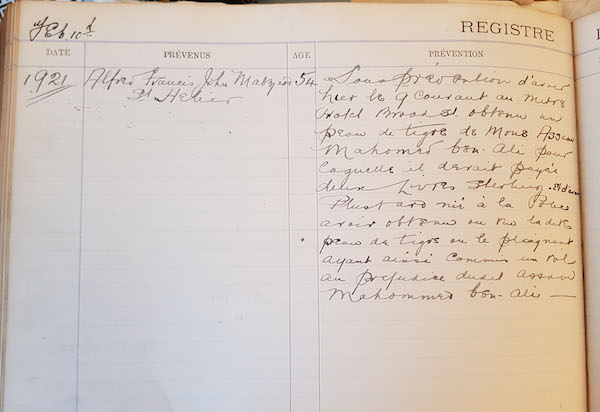 Feb. 10d
REGISTRE
DATE PRÉVENUS AGE PRÉVENTION
1921 Alfred Francis John 54 Sous prévention d'avoir
St Helier hier le 9 Courant au Metro
Hotel Broad St. obtenu un
peau de tigre de Mons Assan
Mahomed ben-Ali pour
laquelle il devait payée
deux Livres Sterling. Et d'avoir
Plustard nié à la Police
avoir obtenu ou vu ladite
peau de tigre ou le plaignant
ayant ainsi commis un vol
au prejudice dudit Assan
Mahommed ben-Ali —